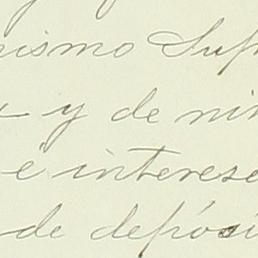 mismo Sup
y de nin
é interese
de depósi